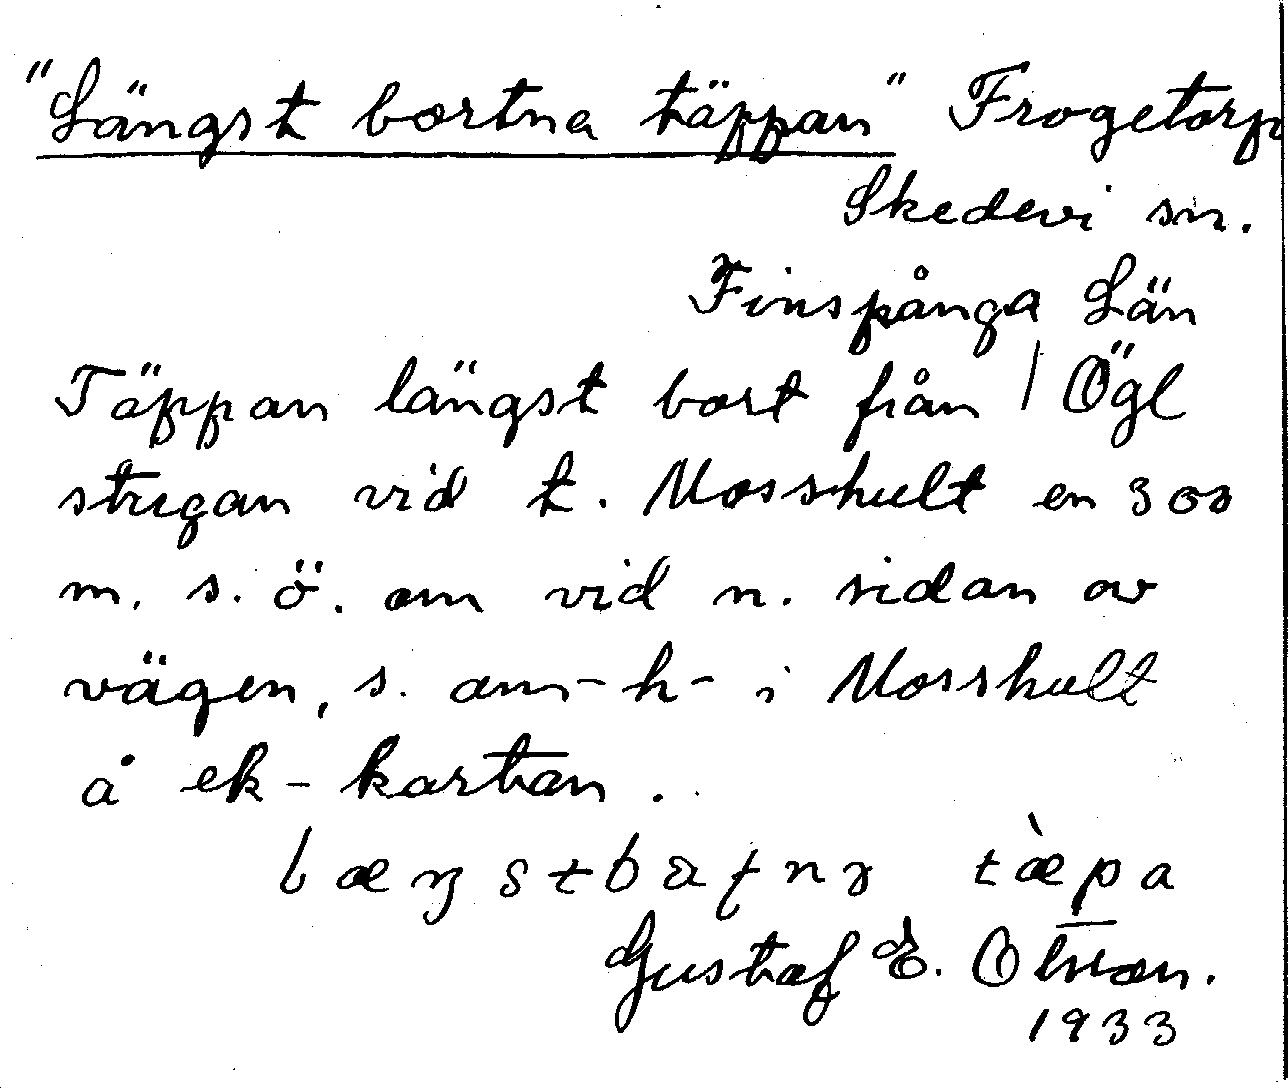 "Längst bortna täppan" Frogetorp
Skedevi sn.
Finspånga Län
Täppan längst bort från / Ögl
stugan vid t. Mosshult en 300
m. s. ö. om vid n. sidan av
vägen, s. om -h- i Mosshult
å ek-kartan.
tæpa
Gustaf E. Olsson.
1933